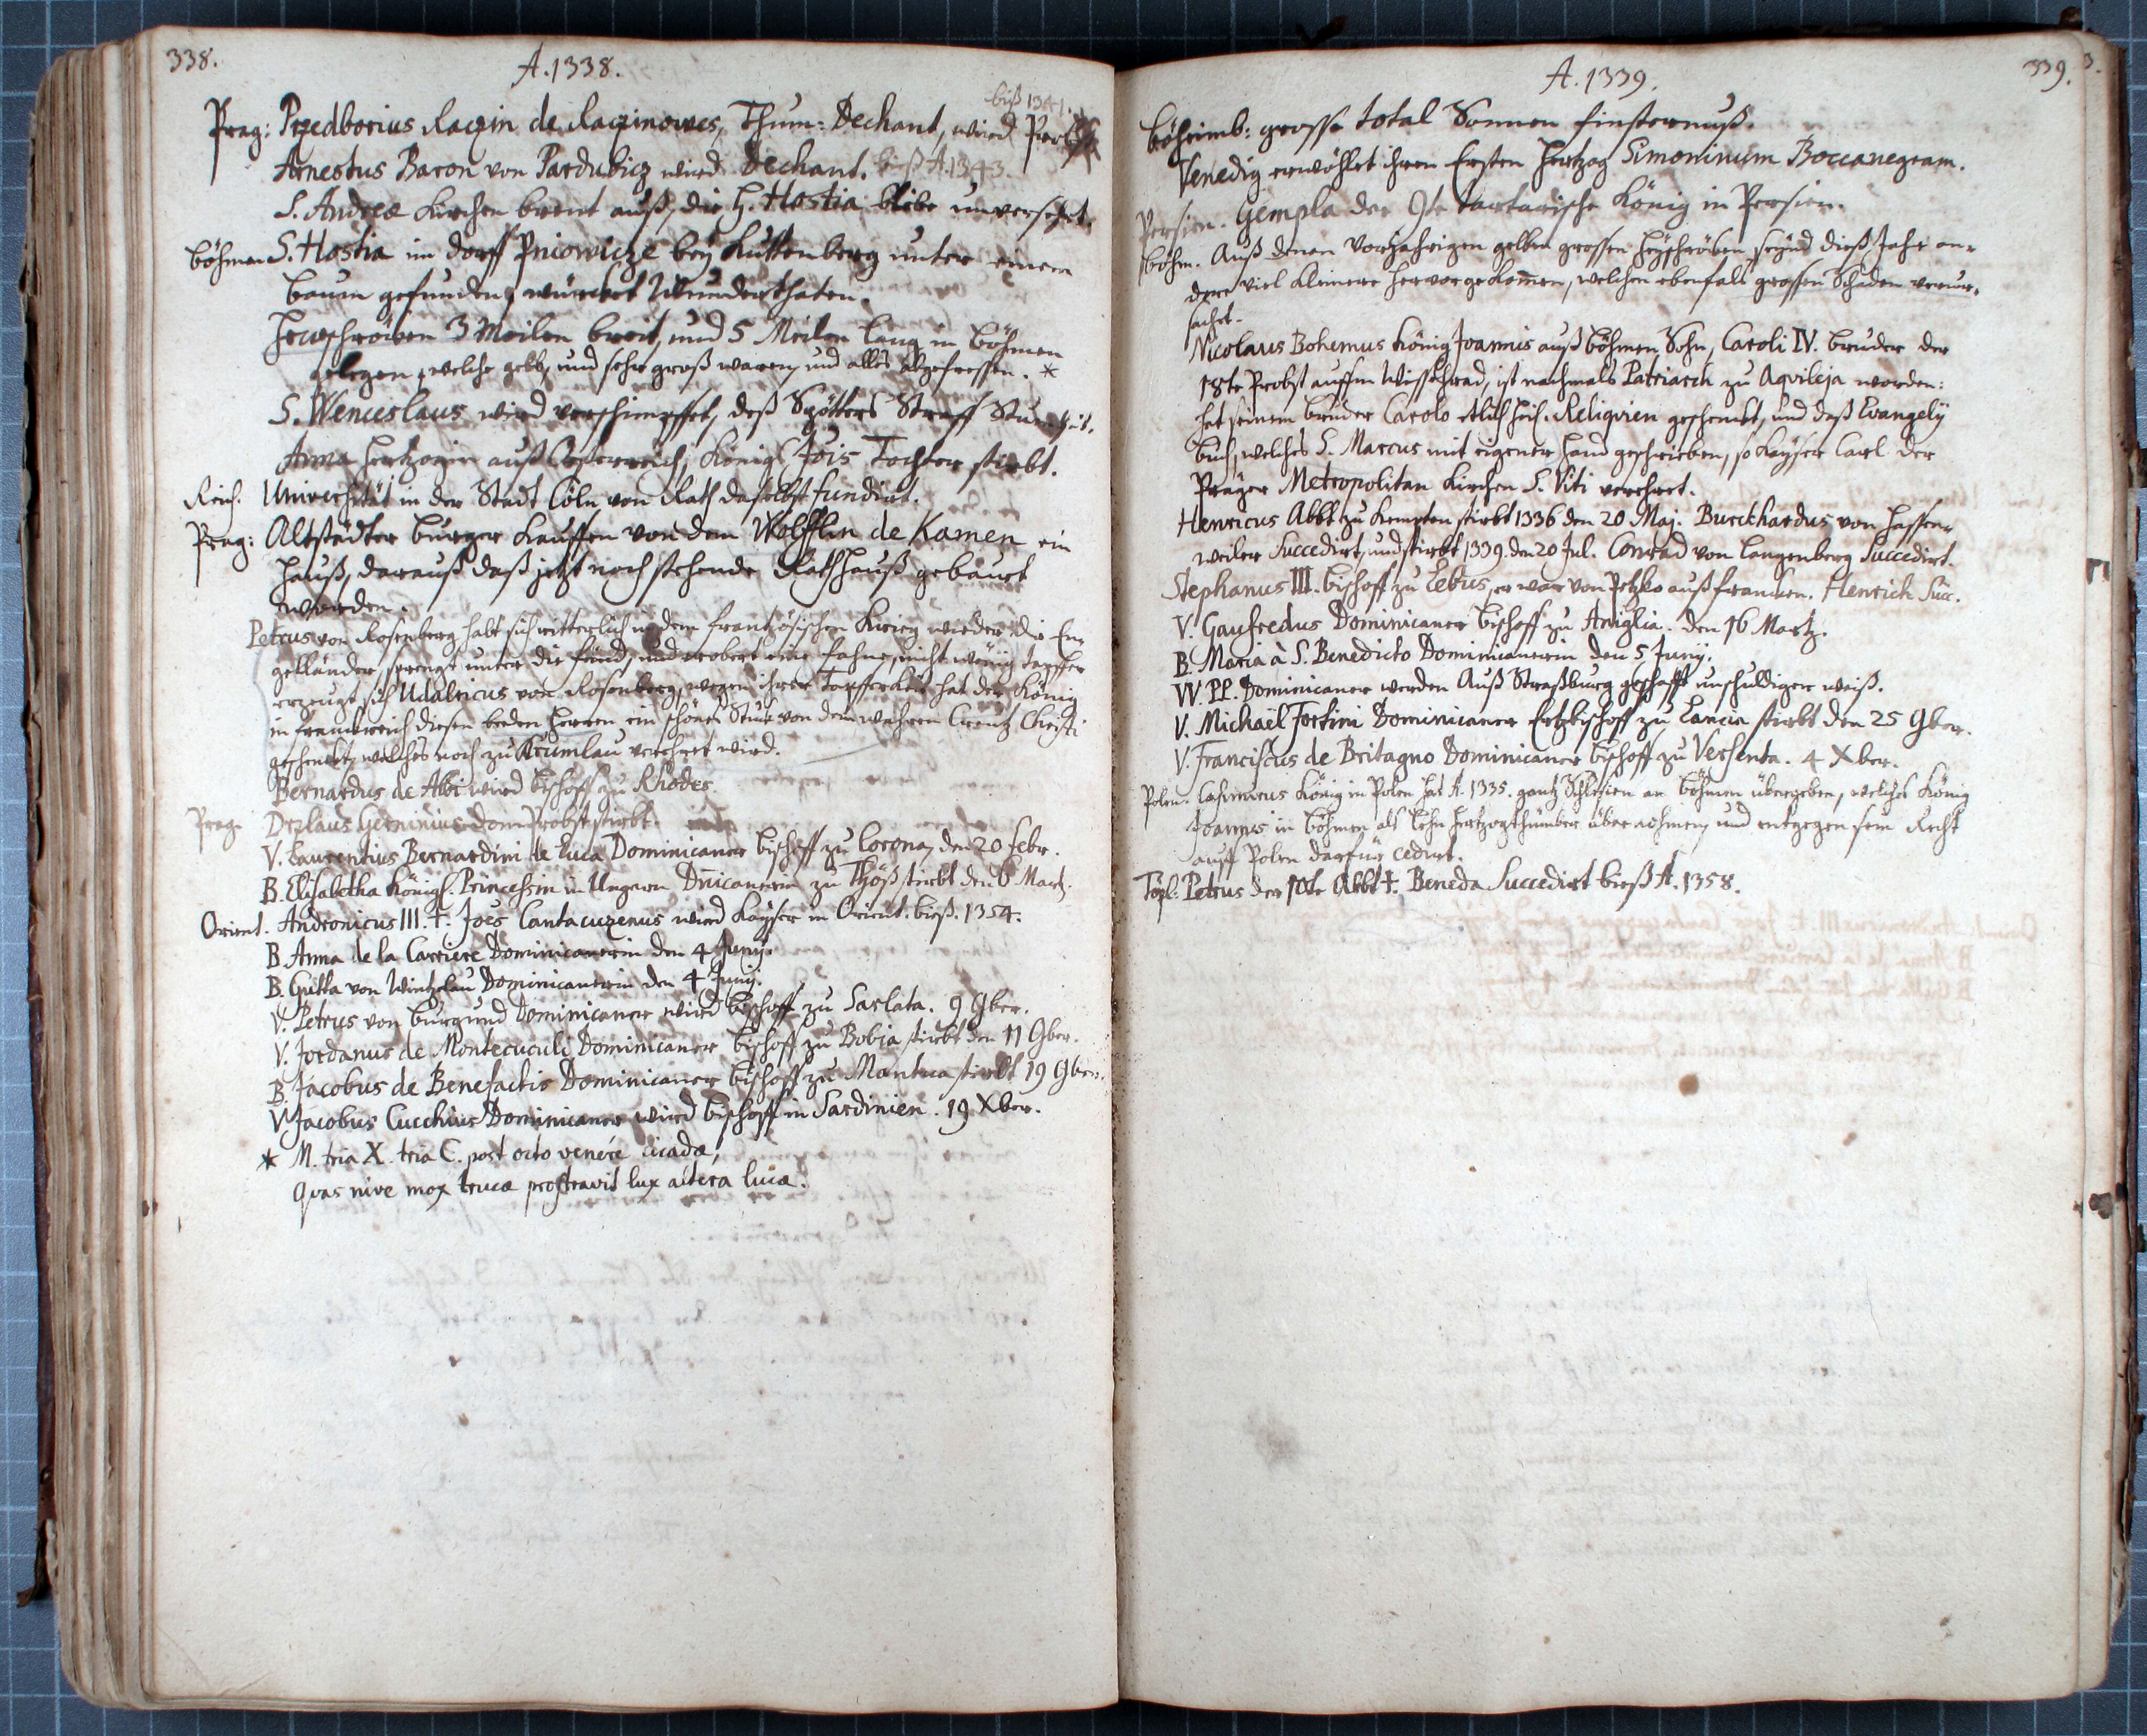 338.
A. 1338.
biß 1341.
Prag: Przedborius Raczin de Raczinowes, Thum-Dechant, wird Probst
Arnestus Baron von Pardubicz wird Dechant. bieß A. 1343.
S. Andreæ Kirchen brent auß, die H. Hostia bliebe unversehrt.
Böhmen S. Hostia im dorff Pniowicze bey Kuttenberg unter einem
baum gefunden, würcket Wunderthaten.
Hewschröken 3 Meilen breit, und 5 Meilen lang in Böhmen
gelegen, welche gelb, und sehr groß waren, und alles abgefressen. *
S. Wenceslaus wird verschimpffet, deß Spötters Straff
Anna Hertzogin auß Österreich, König Jois Tochter stirbt.
Reich. Universität in der Stadt Cöln von Rath daselbst fundirt.
Prag: Altstädter burger kauffen von dem Wölfflin de Kamen ein
Hauß, darauß daß jetzt noch stehende Rathhauß gebauet
worden.
Petrus von Rosenberg halt sich ritterlich in dem frantzösischen Krieg wieder die En-
gelländer, sprengt unter die feind, und erobert eine fahne, nicht wenig tapffer
erzeugt sich Udalricus von Rosenberg, wegen ihrer Tapfferkeit hat der König
in Franckreich diesen beeden Herren ein schönes Stuk von dem wahren Creutz Christi
geschenckt, welches noch zu Krumlau verehret wird.
Bernardus de Albi wird bischoff zu Rhodes.
Prag. Drzlaus Germinius dom Probst stirbt.
V. Laurentius Bernardini de Luca Dominicaner bischoff zu Corona, den 20 Febr.
B. Elisabetha Königl. Princessin in Ungarn Dnicanerin zu Thöß stirbt den 6 Martz.
Orient. Andronicus III. †. Joes Cantacuzenus wird Kayser in Orient. bieß. 1354.
B. Anna de la Carriere Dominicanerin den 4 Junij.
B. Gutta von Wintzelau Dominicanerin den 4 Junij.
V. Petrus von burgund Dominicaner wird bischoff zu Sarlata. 9 9ber.
V. Jordanus de Montecuculi Dominicaner bischoff zu Bobia stirbt den 11 9ber.
B. Jacobus de Benefactis Dominicaner bischoff zu Mantua stirbt 19 9ber.
V. Jacobus Cucchius Dominicaner wird bischoff in Sardinien. 19 Xber.
* M. tria X. tria C. post octo venére cicadæ,
Quas nive mox trucæ prostravit lux altera lucæ.
339.
3.
A. 1339.
Böheimb: grosse total Sonnen finsternuß.
Venedig erwöhlet ihren Ersten Hertzog Simoninum Boccanegram.
Persien. Gempla der 9te tartarische König in Persien.
Böhm. Auß denen Vorjahrigen gelben grossen Heyschröken seynd dieß Jahr an-
dere viel kleinere hervorgekom̄en, welchen ebenfals grossen Schaden verur-
sachet.
Nicolaus Bohemus König Joannis auß Böhmen Sohn, Caroli IV. bruder der
18te Probst auffm Wissehrad, ist nachmals Patriarch zu Aqvileja worden:
hat seinem bruder Carolo etlich heil. Reliqvien geschenckt, und daß Evangely
buch, welches S. Marcus mit eigener hand geschrieben, so Kayser Carl der
Prager Metropolitan Kirchen S. Viti verehret.
Henricus Abbt zu Kempten stirbt 1336 den 20 Maj. Burckhardus von Hassen-
weiler Succedirt, und stirbt 1339. den 20 Jul. Conrad von Langenberg Succedirt.
Stephanus III. bischoff zu Lebus, er war von Petzko auß francken. Henrich Succ.
V. Gaufredus Dominicaner bischoff zu Aniglia. den 16 Martz.
B. Maria à S. Benedicto Dominicanerin den 5 Junij.
VV. PP. Dominicaner werden Auß Straßburg geschafft unschuldiger weiß.
V. Michaël Fortini Dominicaner Ertzbischoff zu Lancia stirbt den 25 9ber.
V. Franciscus de Britagno Dominicaner bischoff zu Versenta. 4 Xber.
Polen. Casimirus König in Polen hat A. 1335. gantz Schlesien an Böhmen übergeben, welches König
Joannes in Böhmen als Lehn hertzogthümber übernohmen, und entgegen sein Recht
auff Polen darfür cedirt.
Töpl. Petrus der 10te Abbt †. Beneda Succedirt bieß A. 1358.